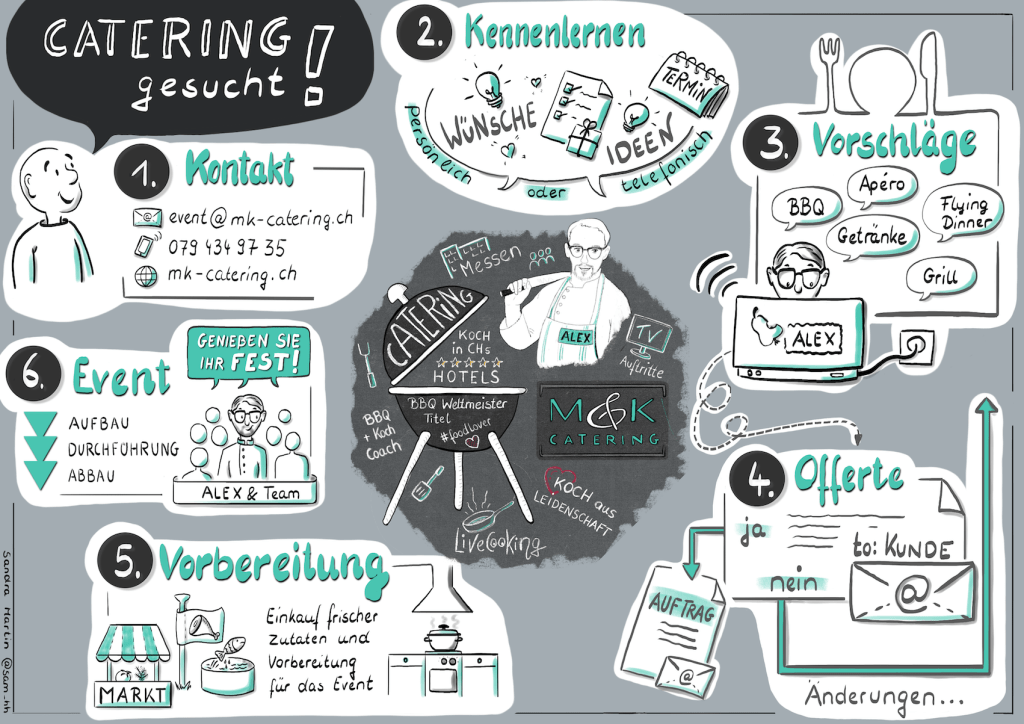 CATERING
gesucht!
1. Kontakt
event@mk-catering.ch
079 434 97 35
mk-catering.ch
2. Kennenlernen
WÜNSCHE
IDEEN
TERMIN
persönlich oder telefonisch
3. Vorschläge
BBQ
Apéro
Flying
Dinner
Getränke
Grill
ALEX
4. Offerte
ja
nein
to: KUNDE
@
AUFTRAG
@
Änderungen...
5. Vorbereitung
MARKT
Einkauf frischer
zutaten und
Vorbereitung
für das Event
6. Event
AUFBAU
DURCHFÜHRUNG
ABBAU
GENIEßEN SIE
IHR FEST!
ALEX & Team
Messen
CATERING
KOCH
in CHs
HOTELS
ALEX
TV
Auftritte
BBQ Weltmeister
Titel
#foodlover
BBQ
+ Koch
Coach
M&K
CATERING
KOCH aus
LEIDENSCHAFT
LiveCooking
Sandra Martin @sam_hh